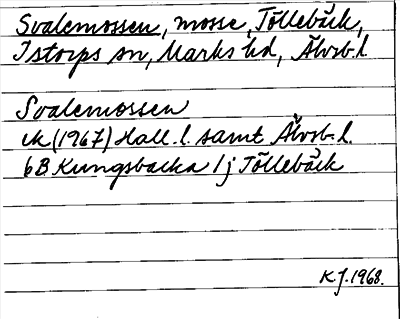 Svalemossen, mosse, Töllebäck,
Istorps sn, Marks hd, Älvsb. l
Svalemossen
ek (1967) Hall. l. samt Älvsb. l.
6B Kungsbacka 1j Töllebäck
K.J. 1968.